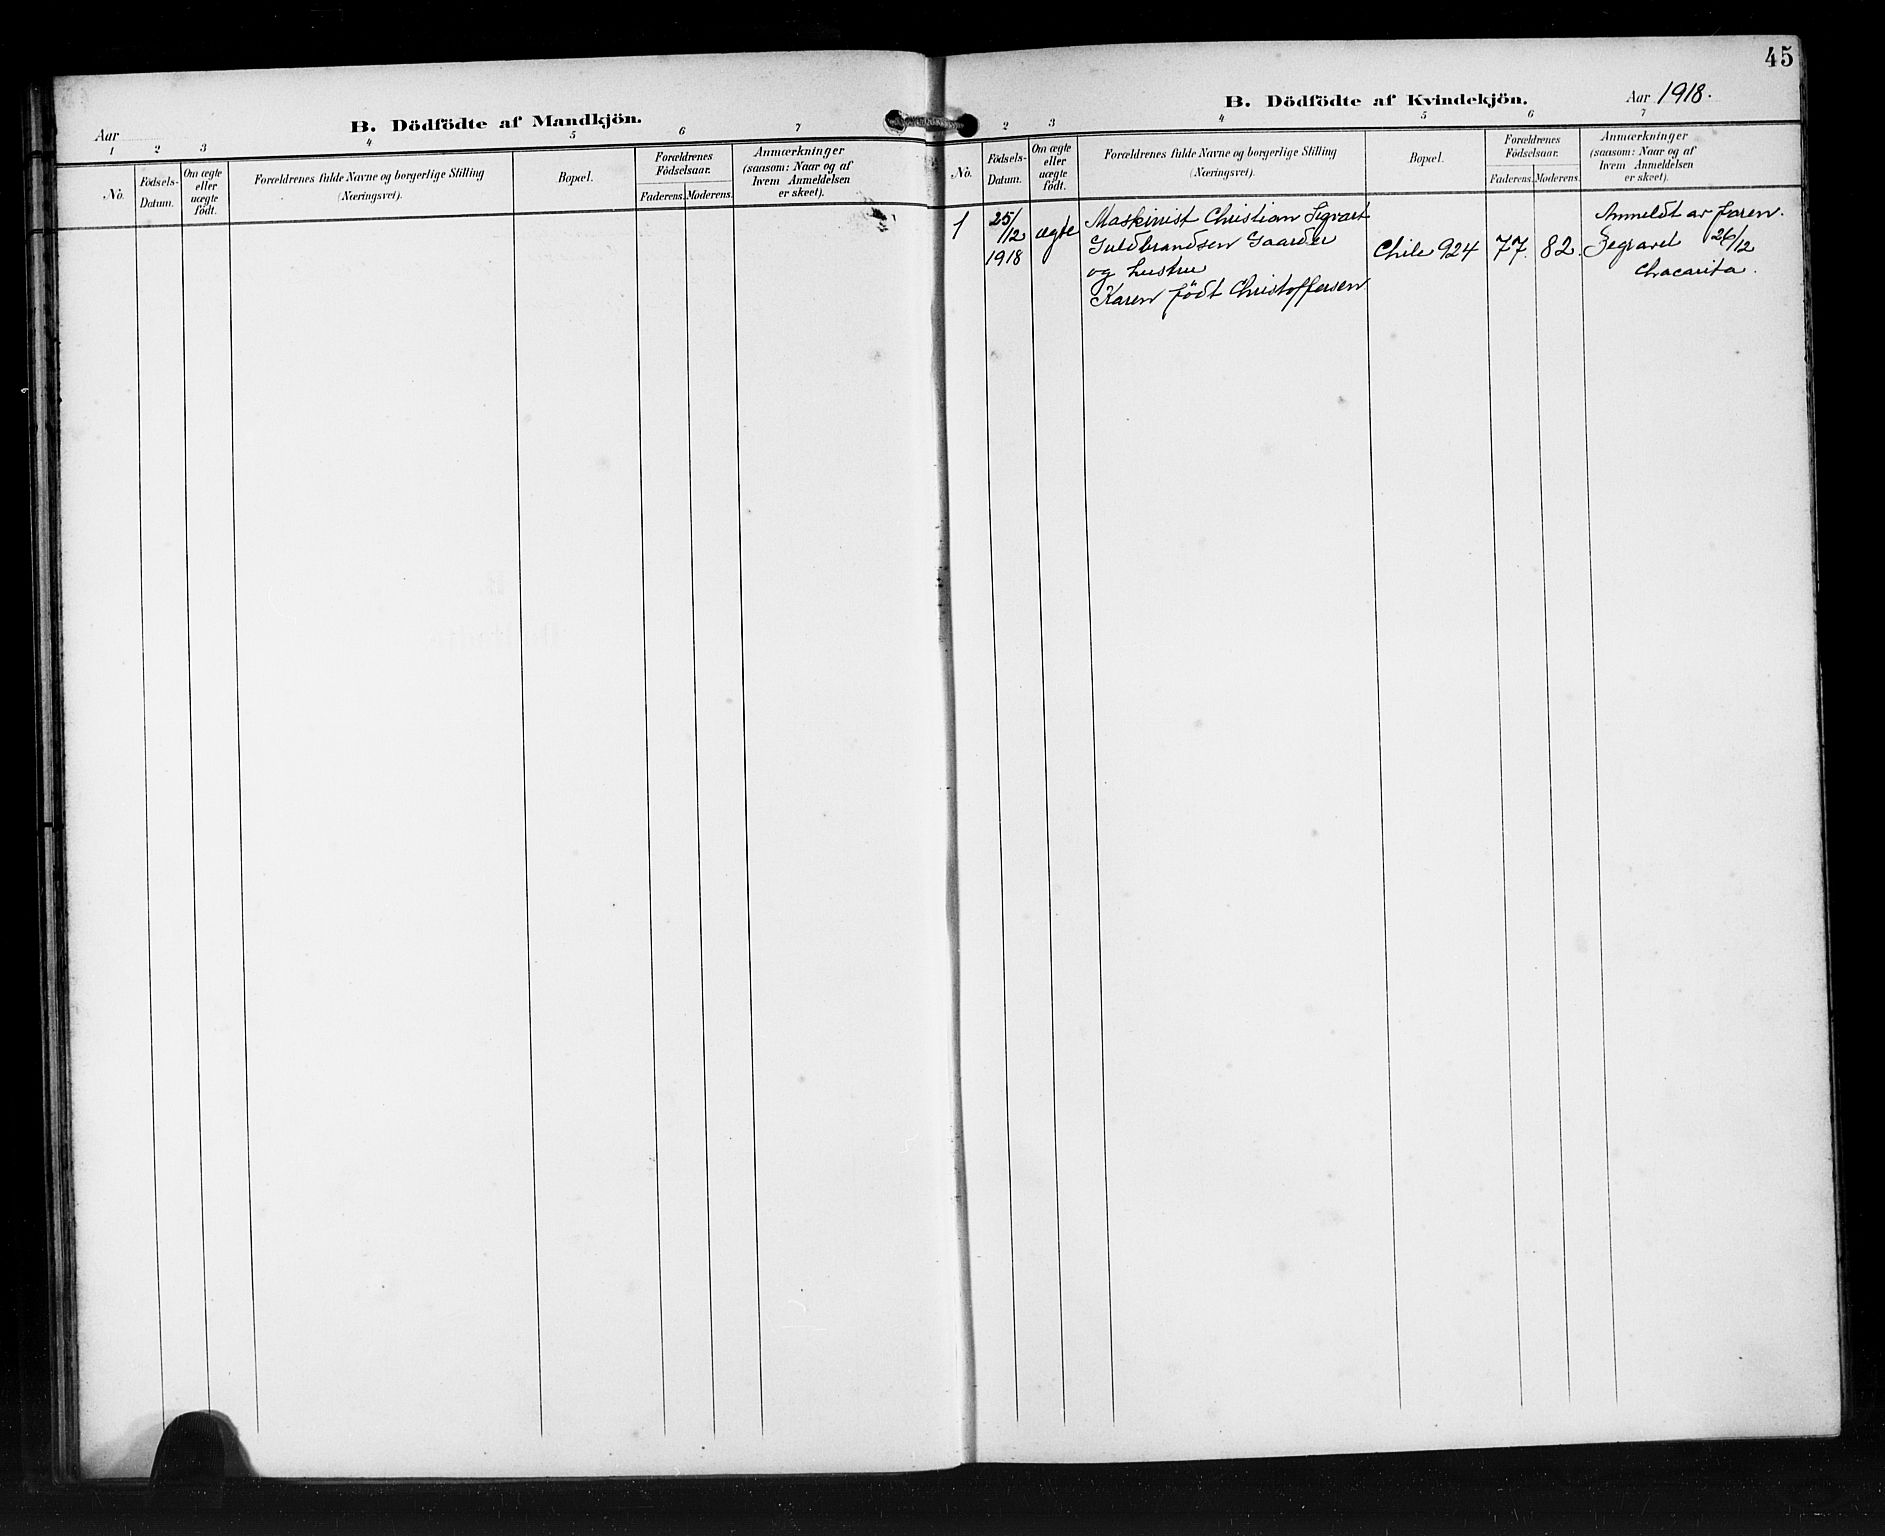 45
B. Dödfödte af Mandkjön.
Aar
1 2 3 4 5 6 7
No.
Födsels-
Datum.
Om ægte
eller
uægte
födt.
Forældrenes fulde Navne og borgerlige Stilling
(Næringsvei).
Bopæl.
Forældrenes
Födselsaar.
Faderens. Moderens.
Anmærkninger
(saasom: Naar og af
hvem Anmeldelsen
er skeet).
B. Dödfödte af Kvindekjön.
Aar 1918.
2 3 4 5 6 7
No.
Födsels-
Datum.
Om ægte
eller
uægte
födt.
Forældrenes fulde Navne og borgerlige Stilling
(Næringsvei).
Bopæl.
Forældrenes
Födselsaar.
Faderens. Moderens.
Anmærkninger
(saasom: Naar og af
hvem Anmeldelsen
er skeet).
1
25/
/12
1918
ægte
Maskinist Christian Sigvart
Guldbrandsen Gaarder
og hustru
Karen født Christoffersen
Chile 924
77.
82.
Anmeldt av faren.
Begravet 26/12
Chacarita.